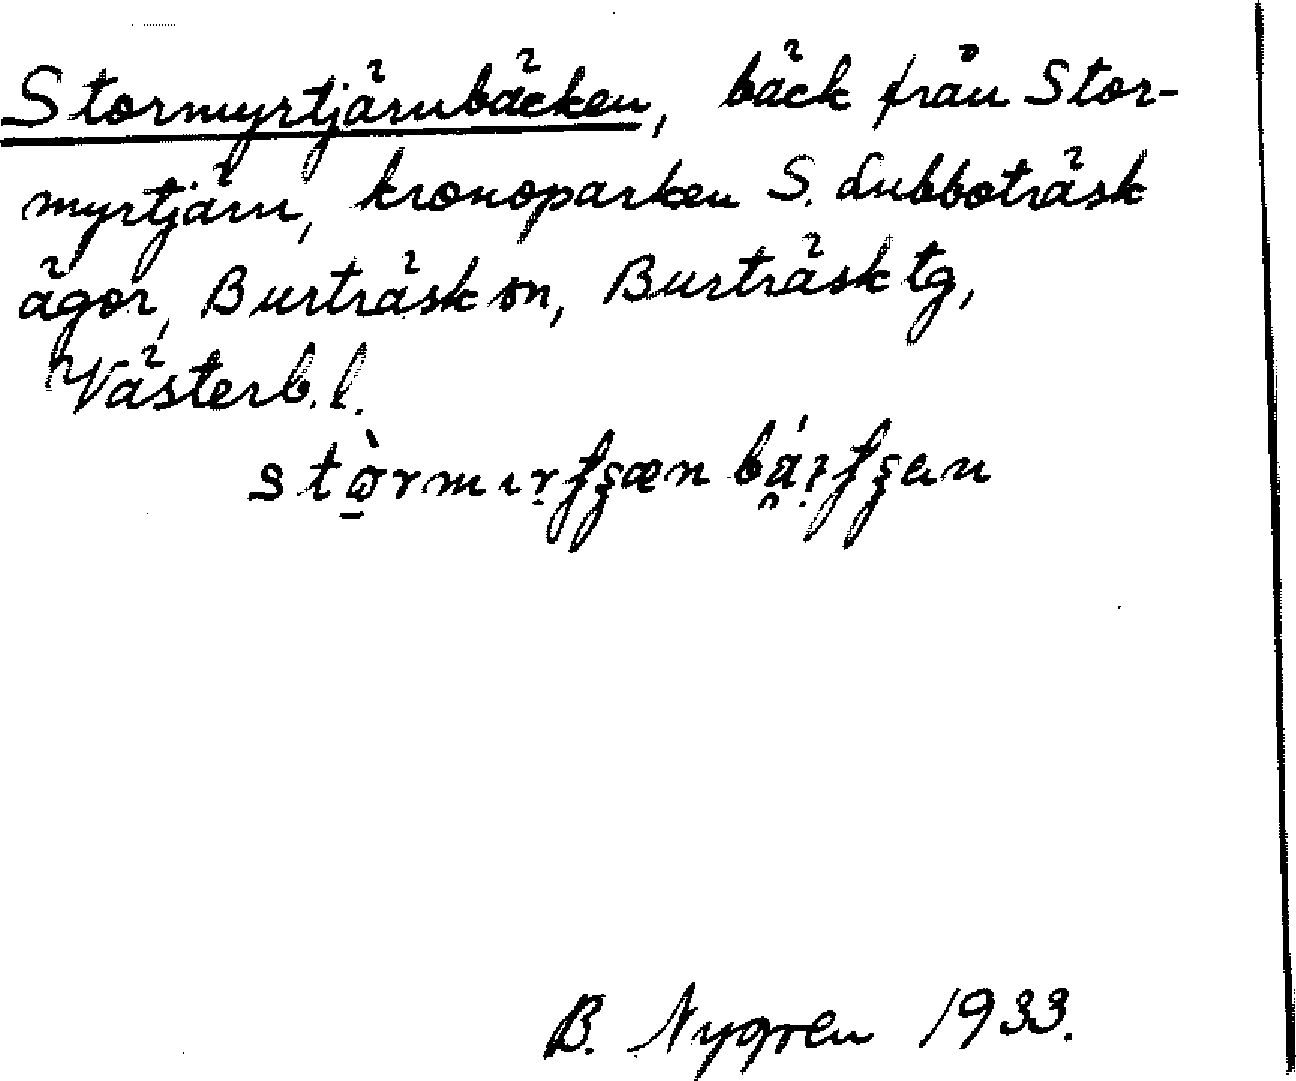 Stormyrtjärnbäcken, bäck från Stor-
myrtjärn, kronoparken S. Lubboträsk
ägor, Burträsk sn, Burträsk tg,
Västerb. l.
B. Nygren 1933.